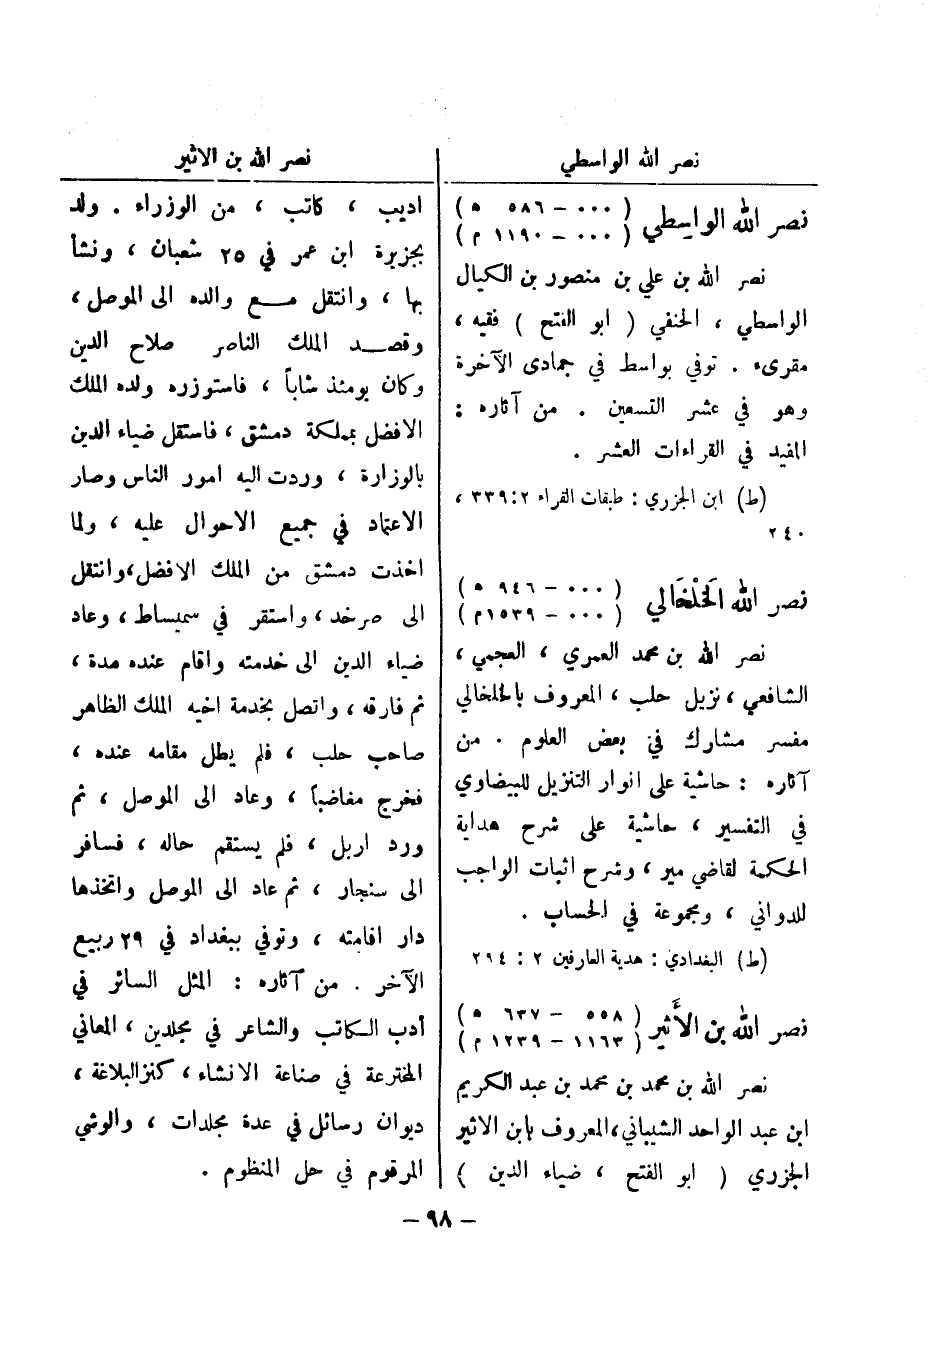 نصر الله الواسطي
نصر الله الواسطي ( ٠٠٠ - ٥٨٦ ه )
( ٠٠٠ - ١١٩٠ م )
نصر الله بن علي بن منصور بن الكيال
الواسطي ، الحنفي ( ابو الفتح ) فقيه ،
مقرىء . توفي بواسط في جمادى الآخرة
وهو في عشر التسعين . من آثاره :
المفيد في القراءات العشر .
(ط) ابن الجزري : طبقات القراء ٢ : ٣٣٩ ،
٢٤٠
نصر الله الخَلْخَالي ( ٠٠٠ - ٩٤٦ ه )
( ٠٠٠ - ١٥٣٩ م )
نصر الله بن محمد العمري ، العجمي ،
الشافعي ، نزيل حلب ، المعروف بالخلخالي
مفسر مشارك في بعض العلوم . من
آثاره : حاشية على انوار التنزيل للبيضاوي
في التفسير ، حاشية على شرح هداية
الحكمة لقاضي مير ، وشرح اثبات الواجب
للدواني ، ومجموعة في الحساب .
(ط) البغدادي : هدية العارفين ٢ : ٢٩٤
نصر الله بن الأَثير ( ٥٥٨ - ٦٣٧ ه )
( ١١٦٣ - ١٢٣٩ م )
نصر الله بن محمد بن محمد بن عبد الكريم
ابن عبد الواحد الشيباني ، المعروف بابن الاثير
الجزري ( ابو الفتح ، ضياء الدين )
نصر الله بن الاثير
اديب ، كاتب ، من الوزراء . ولد
بجزيرة ابن عمر في ٢٥ شعبان ، ونشأ
بها ، وانتقل مع والده الى الموصل ،
وقصد الملك الناصر صلاح الدين
وكان يومئذ شاباً ، فاستوزره ولده الملك
الافضل بمملكة دمشق ، فاستقل ضياء الدين
بالوزارة ، وردت اليه امور الناس وصار
الاعتماد في جميع الاحوال عليه ، ولما
اخذت دمشق من الملك الافضل ، وانتقل
الى صرخد ، واستقر في سميساط ، وعاد
ضياء الدين الى خدمته واقام عنده مدة ،
ثم فارقه ، واتصل بخدمة اخيه الملك الظاهر
صاحب حلب ، فلم يطل مقامه عنده ،
فخرج مغاضباً ، وعاد الى الموصل ، ثم
ورد اربل ، فلم يستقم حاله ، فسافر
الى سنجار ، ثم عاد الى الموصل واتخذها
دار اقامته ، وتوفي ببغداد في ٢٩ ربيع
الآخر . من آثاره : المثل السائر في
أدب الكاتب والشاعر في مجلدين ، المعاني
المخترعة في صناعة الانشاء ، كنز البلاغة ،
ديوان رسائل في عدة مجلدات ، والوشي
المرقوم في حل المنظوم .
- ٩٨ -